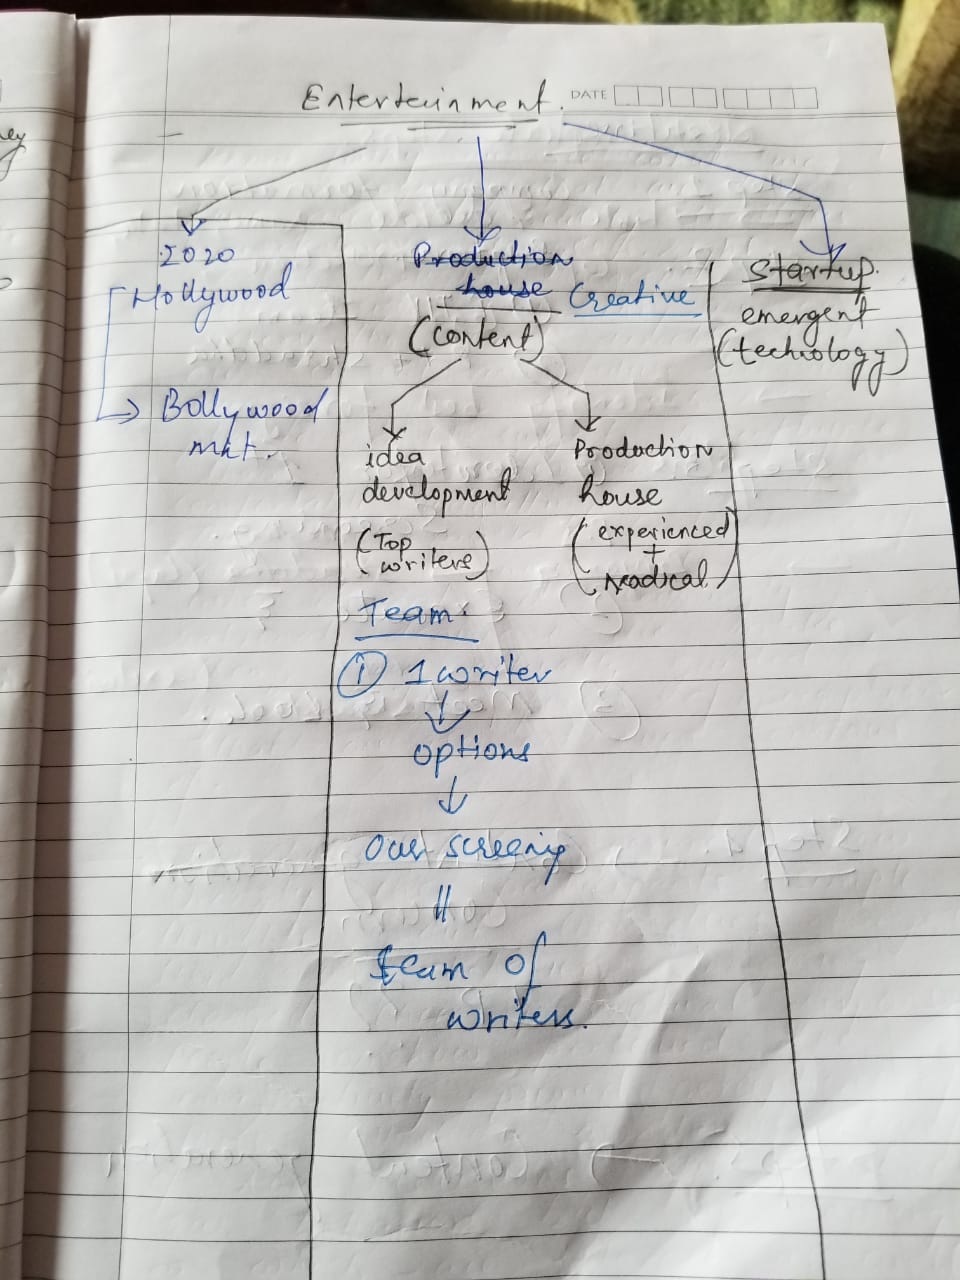 Entertainment.
DATE
2020
Hollywood
Bollywood
mkt.
Production
house
Creative
(content)
idea
development
(Top
writers)
Production
house
(experienced
+
radical)
Startup.
emergent
(technology)
Team.
① 1 writer
options
Our screenig
team of
writers.